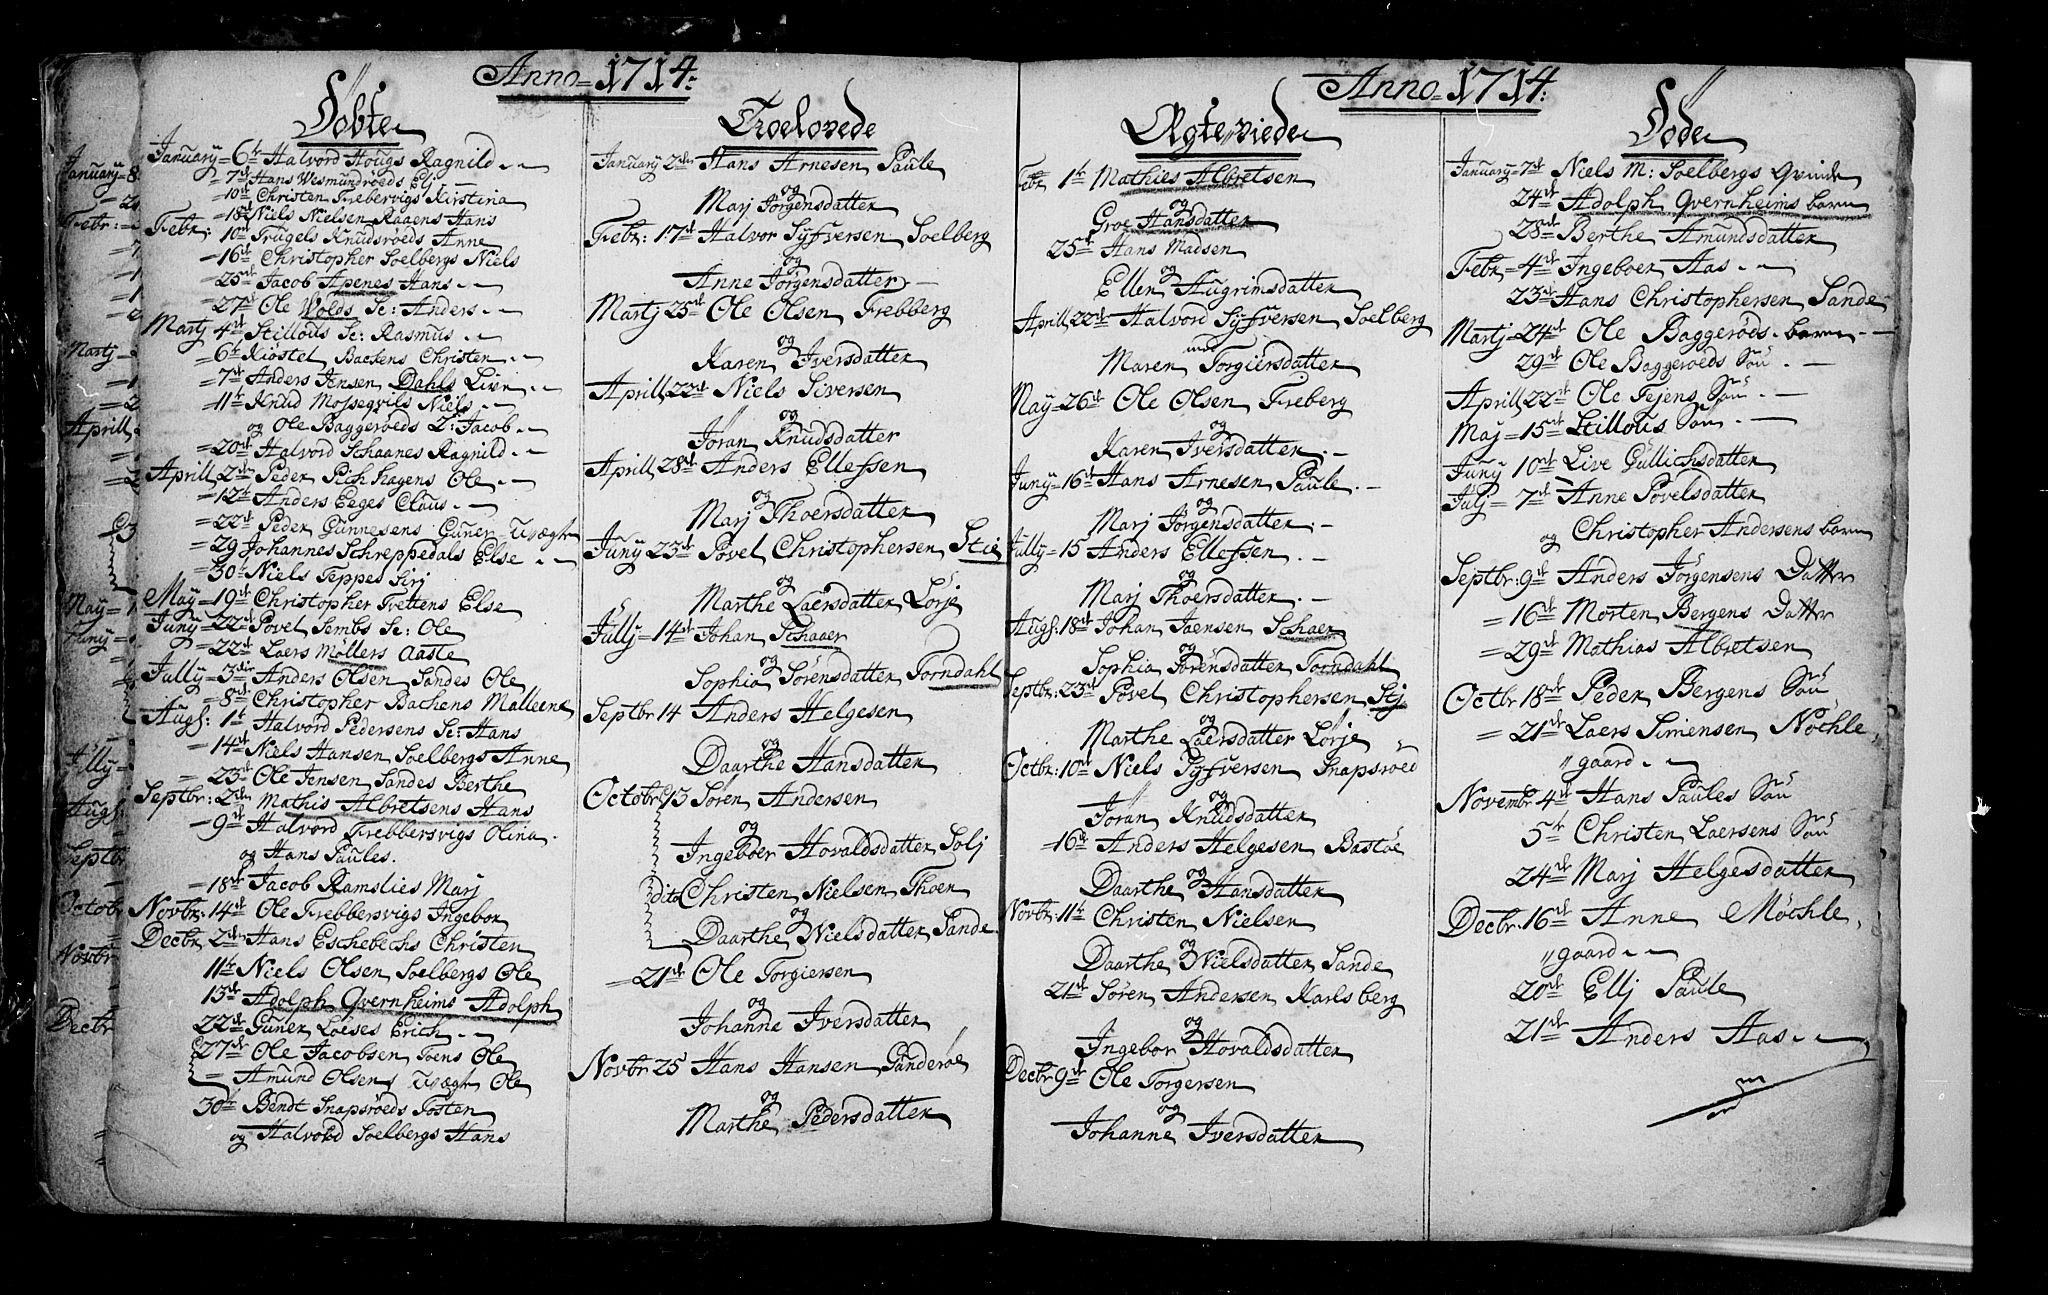 Anno 1714:
Döbte
January = 6tr Halvord Hougs Ragnild
= 7de Hans Wesmundröeds Elj
= 10de Christen Frebervigs Kirstina
= 18de Niels Nielsen Raaens Hans
Febr: 10de Trugels Knudsröeds Anne
= 16de Christopher Soelbergs Niels
= 25de Jacob Apenes Hans
= 27de Ole Wolds Se: Anders
Martj 4de Stillous Se: Rasmus
= 6tr Kiöstel Backens Christen
= 7de Anders Jensen Dahls Live
= 11tr Knud Mossegvils Niels
og Ole Baggeröeds Z: Jacob
= 20de Halvord Schaanes Ragnild
Aprill 2den Peder Rishagens Ole
= 12te Anders Eeges Claus
= 22de Peder Gunnesens Guner Uægte
= 29 Johannes Schreppedals Else
= 30te Niels Teppes Sirj
May = 19de Christopher Tvettens Else
Juny = 22de Povel Sembs Se: Ole
= 22de Laers Möllers Aaste
Jully = 3die Anders Olsen Sandes Ole
= 8de Christopher Backens Malleene
Augs: 1te Halvord Pedersens Se: Hans
= 14de Niels Hansen Soelbergs Anne
= 23de Ole Jensen Sandes Berthe
Septbr: 2den Mathis Albretsens Hans
= 9de Halvord Frebbersvigs Olina
og Hans Paules.
= 18de Jacob Ramslies Marj
Novbr: 14de Ole Frebbersvigs Ingebor
Decbr 2den Hans Eschebechs Christen
11tr Niels Olsen Soelbergs Ole
13de Adolph Qvernheims Adolph
22de Guner Loeses Erich
27de Ole Jacobsen Toens Ole
Amund Olsens Uægte Ole
30te Bendt Snapsröeds Tosten
og Halvord Soelbergs Hans
Troelovede
January 2den Hans Arnesen Paule
og
Marj Jörgensdatter
Febr: 17de Halvor Syfversen Soelberg
og
Anne Jörgensdatter
Martj 25de Ole Olsen Frebberg
og
Karen Iversdatter
Aprill 22de Niels Siversen
og
Jöran Knudsdatter
Aprill 28de Anders Ellefsen
og
Marj Thoersdatter
Juny 23de Povel Christophersen Stie
og
Marthe Laersdatter Lörje
Jully = 14de Johan Schaaer
og
Sophia Sörensdatter Forndahl
Septbr 14 Anders Helgesen
og
Daarthe Hansdatter
Octobr 13 Sören Andersen
og
Ingeboer Hovaldsdatter Solj
dito Christen Nielsen Thoen
og
Daarthe Nielsdatter Sande
= 21de Ole Torgiersen
og
Johanne Iversdatter
Novbr 25 Hans Hansen Ganderöe
og
Marthe Pedersdatter
Anno 1714:
Ægteviede
Febr 1te Mathies Albretsen
og
Groe Hansdatter
25de Hans Madsen
og
Ellen Augrimsdatter
Aprill 22de Halvord Syfversen Soelberg
med
Maren Torgiersdatter
May = 26de Ole Olsen Freberg
og
Karen Iversdatter
Juny = 16de Hans Arnesen Paule
og
Marj Jörgensdatter
Jully = 15 Anders Ellefsen
og
Marj Thoersdatter
Augs: 18de Johan Jaensen Schaer
og
Sophia Sörensdatter Torndahl
Septbr: 23de Povel Christophersen Stj
og
Marthe Laersdatter Lörje
Octbr: 10de Niels Syfversen Snapsröed
og
Jöran Knudsdatter
= 16de Anders Helgesen Bastöe
og
Daarthe Hansdatter
Novbr: 11te Christen Nielsen
og
Daarthe Nielsdatter Sande
21de Sören Andersen Karlsberg
og
Ingebor Hovaldsdatter
Decbr 9de Ole Torgersen
og
Johanne Iversdatter
Döde
January = 7de Niels M: Soelbergs Qvinde
24de Adolph Qvernheims barn
28de Berthe Amundsdatter
Febr = 4de Ingeboer Aas
23de Hans Christophersen Sande
Martj = 24de Ole Baggeröds barn
29de Ole Baggeröeds Söu
Aprill 22de Ole Fejens Söu
Maj = 15de Stillous Söu
Juny 10de Live Gullichsdatter
Julj = 7de Anne Povelsdatter
og Christopher Andersens barn
Septbr: 9de Anders Jörgensens Datter
= 16de Morten Bergens Datter
= 29de Mathias Albretsen
Octbr 18de Peder Bergens Söu
= 21de Laers Simensen Nöchle
gaard
Novembr 4de Hans Paules Söu
5te Christen Laersens Söu
24de Marj Helgesdatter
Decbr: 16de Anne Möchle
gaard
20de Ellj Paule
21de Anders Aas